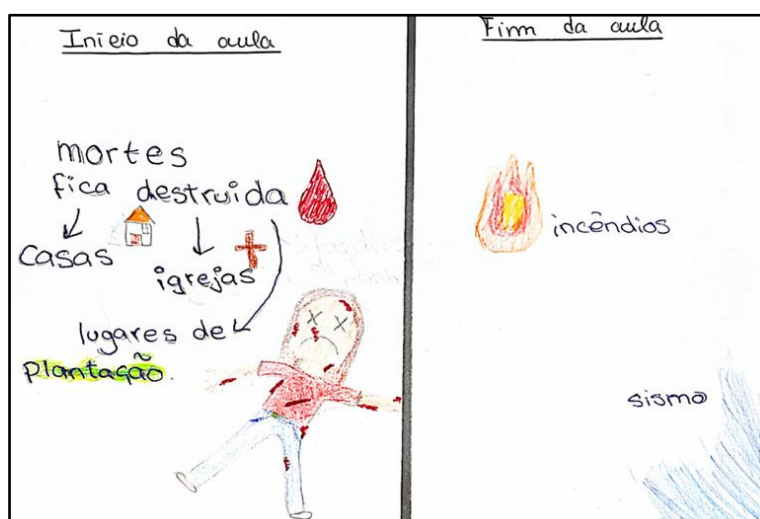 Início da aula
mortes
fica destruida
casas
igrejas
lugares de
plantação.
Fim da aula
incêndios
sismo